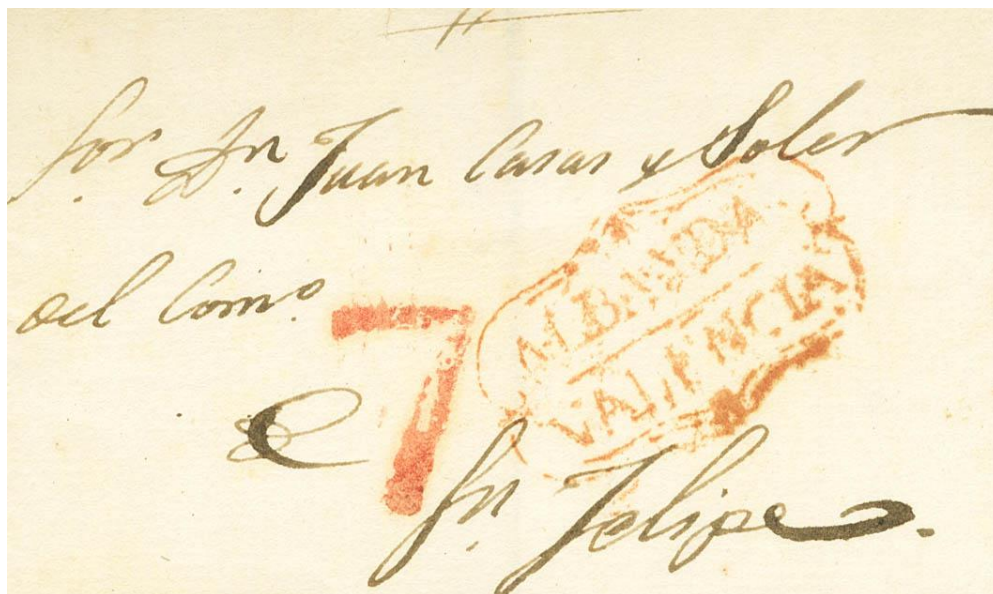 Sor. Dn. Juan Casas y Soler
del Como.
7
ALBAYDA
VALENCIA
Sn. Felipe.